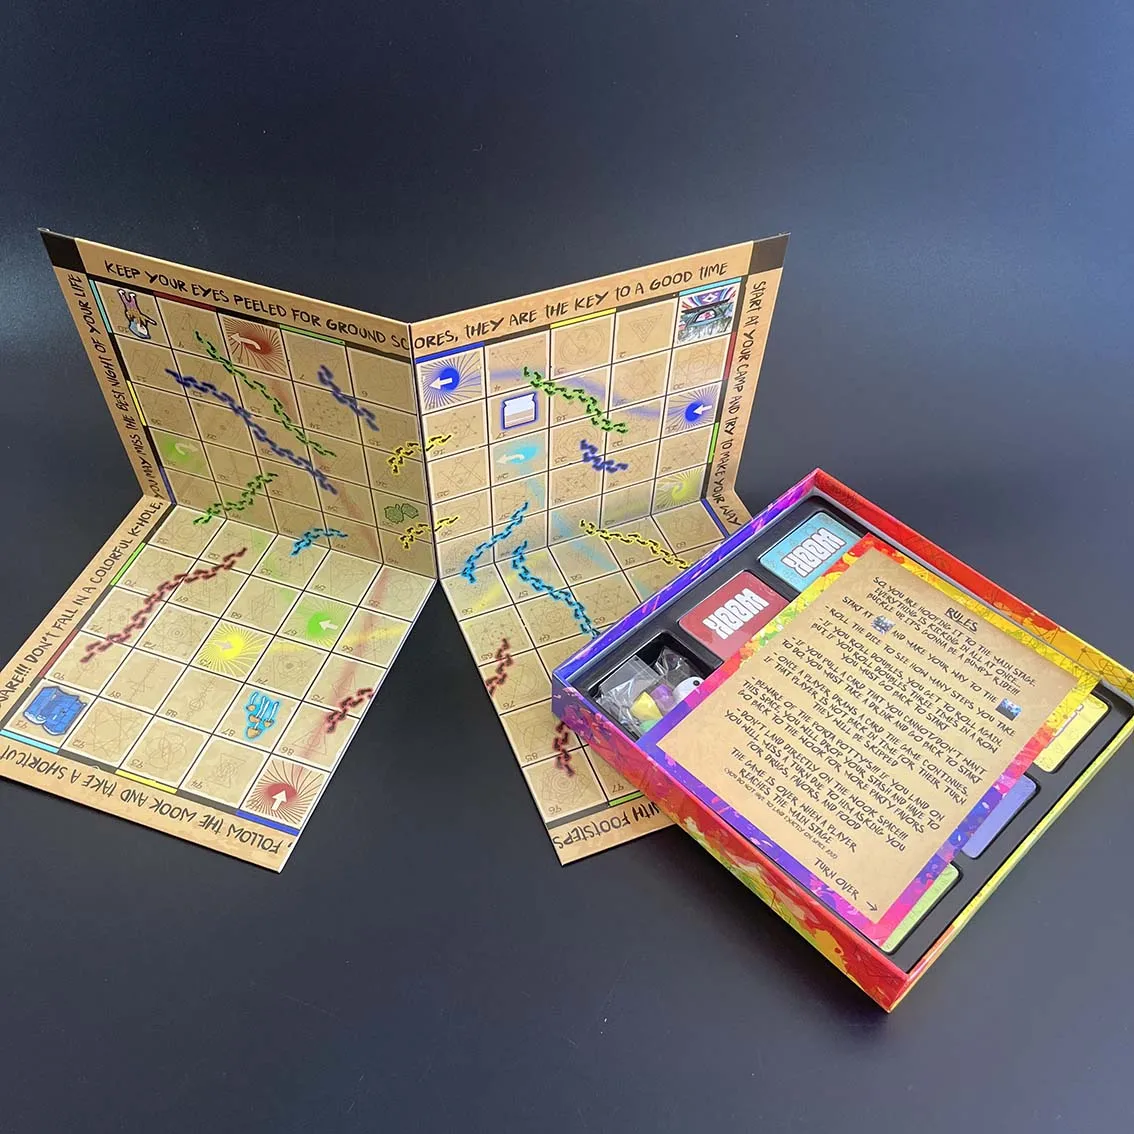 KEEP YOUR EYES PEELED FOR GROUND SCORES, THEY ARE THE KEY TO A GOOD TIME
START AT YOUR CAMP AND TRY TO MAKE YOUR WAY
YOU MAY MISS THE BEST NIGHT OF YOUR LIFE
DON'T FALL IN A COLORFUL K-HOLE,
FOLLOW THE WOOK AND TAKE A SHORTCUT
FOOTSTEPS
WOOK
WOOK
RULES
SO, YOU ARE HOOFING IT TO THE MAIN STAGE.
EVERYTHING IS KICKING IN ALL AT ONCE.
BUCKLE UP, IT'S GONNA BE A BUMPY RIDE!!!
START AT AND MAKE YOUR WAY TO THE
ROLL THE DICE TO SEE HOW MANY STEPS YOU TAKE
-IF YOU ROLL DOUBLES, YOU GET TO ROLL AGAIN.
BUT IF YOU ROLL DOUBLES THREE TIMES IN A ROW
YOU MUST GO BACK TO START
-IF YOU PULL A CARD THAT YOU CANNOT/DON'T WANT
TO DO, YOU MUST TAKE A DRINK AND GO BACK TO START
-ONCE A PLAYER DRAWS A CARD THE GAME CONTINUES,
IF THAT PLAYER IS NOT BACK IN TIME FOR THEIR TURN
THEY WILL BE SKIPPED
-BEWARE OF THE PORTA POTTYS!!! IF YOU LAND ON
THIS SPACE, YOU WILL DROP YOUR STASH AND HAVE TO
GO BACK TO THE WOOK FOR MORE PARTY FAVORS
-DON'T LAND DIRECTLY ON THE WOOK SPACE!!!
YOU WILL MISS A TURN DUE TO HIM ASKING YOU
FOR DRUGS, FAVORS, AND FOOD
THE GAME IS OVER WHEN A PLAYER
REACHES THE MAIN STAGE
(YOU DO NOT HAVE TO LAND EXACTLY ON SPACE
TURN OVER →